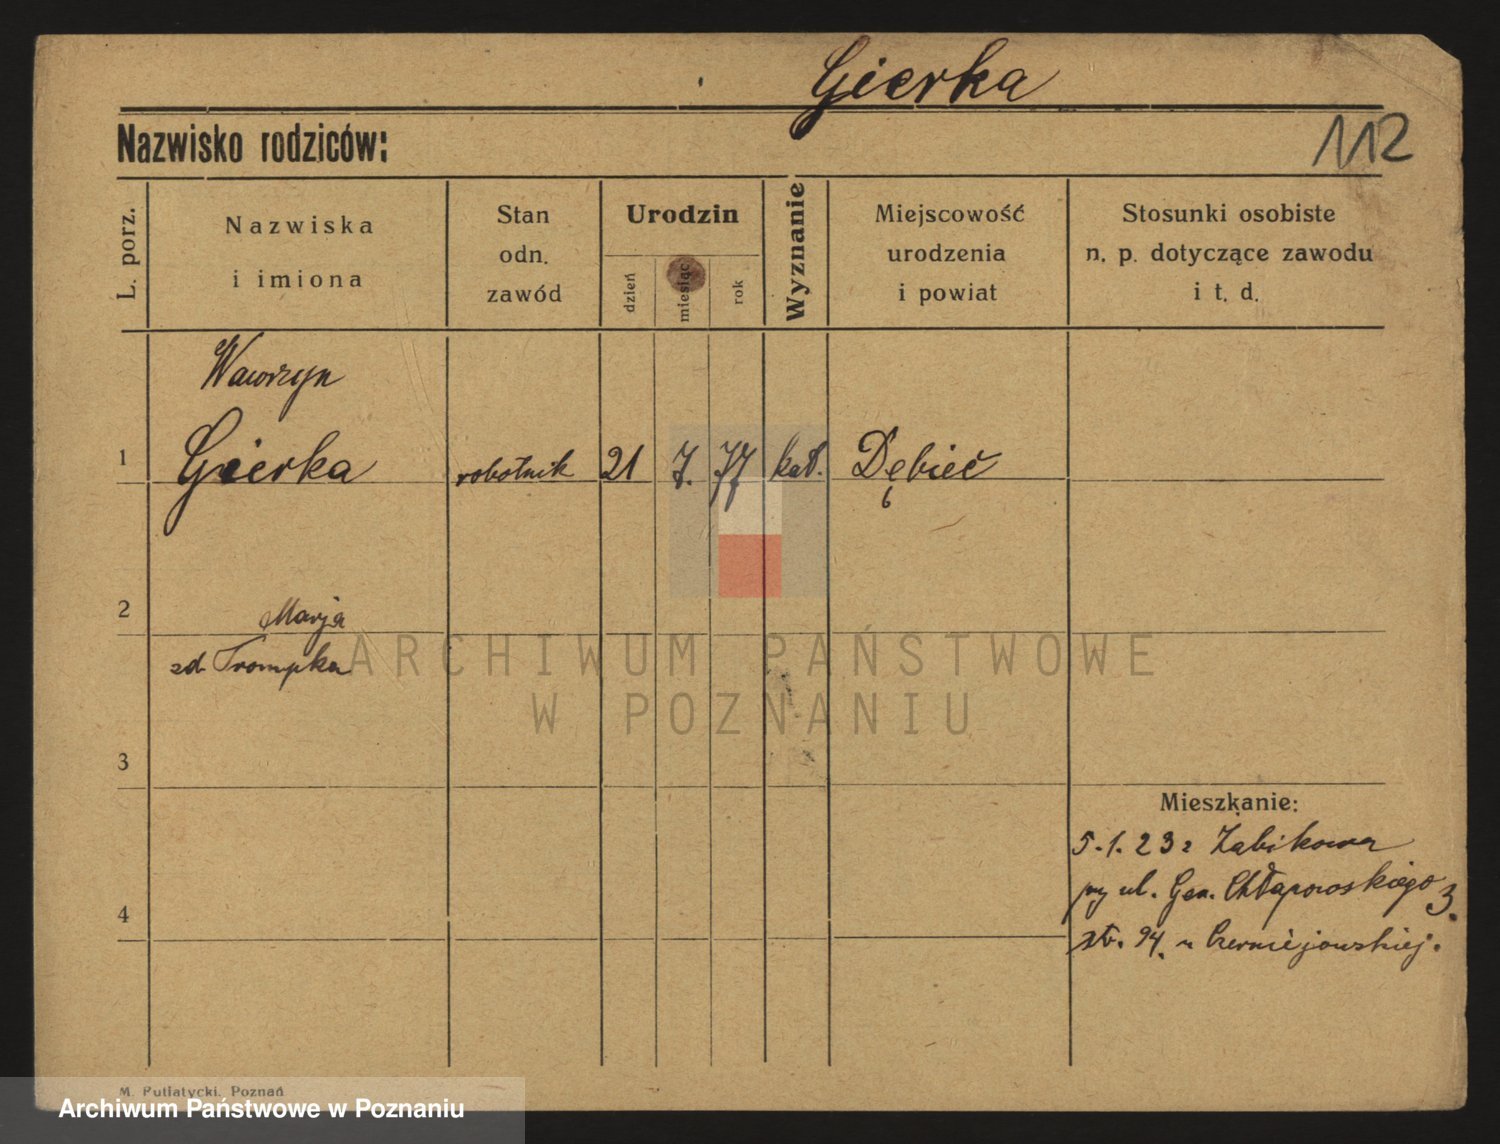 Gierka
Nazwisko rodziców:
112
L. porz.
Nazwiska
i imiona
Stan
odn.
zawód
Urodzin
dzień
miesiąc
rok
Wyznanie
Miejscowość
urodzenia
i powiat
Stosunki osobiste
n. p. dotyczące zawodu
i t. d.
Wawrzyn
1 Gierka robotnik 21 7. 77 kat. Dębieć
2 Marja
zd. Trompka
ARCHIWUM PAŃSTWOWE
W POZNANIU
3
Mieszkanie:
5.1.23 z Żabikowa
przy ul. Gen. Chłapowskiego 3.
4
str. 94. u Czerniejewskiej.
M. Putiatycki, Poznań
Archiwum Państwowe w Poznaniu